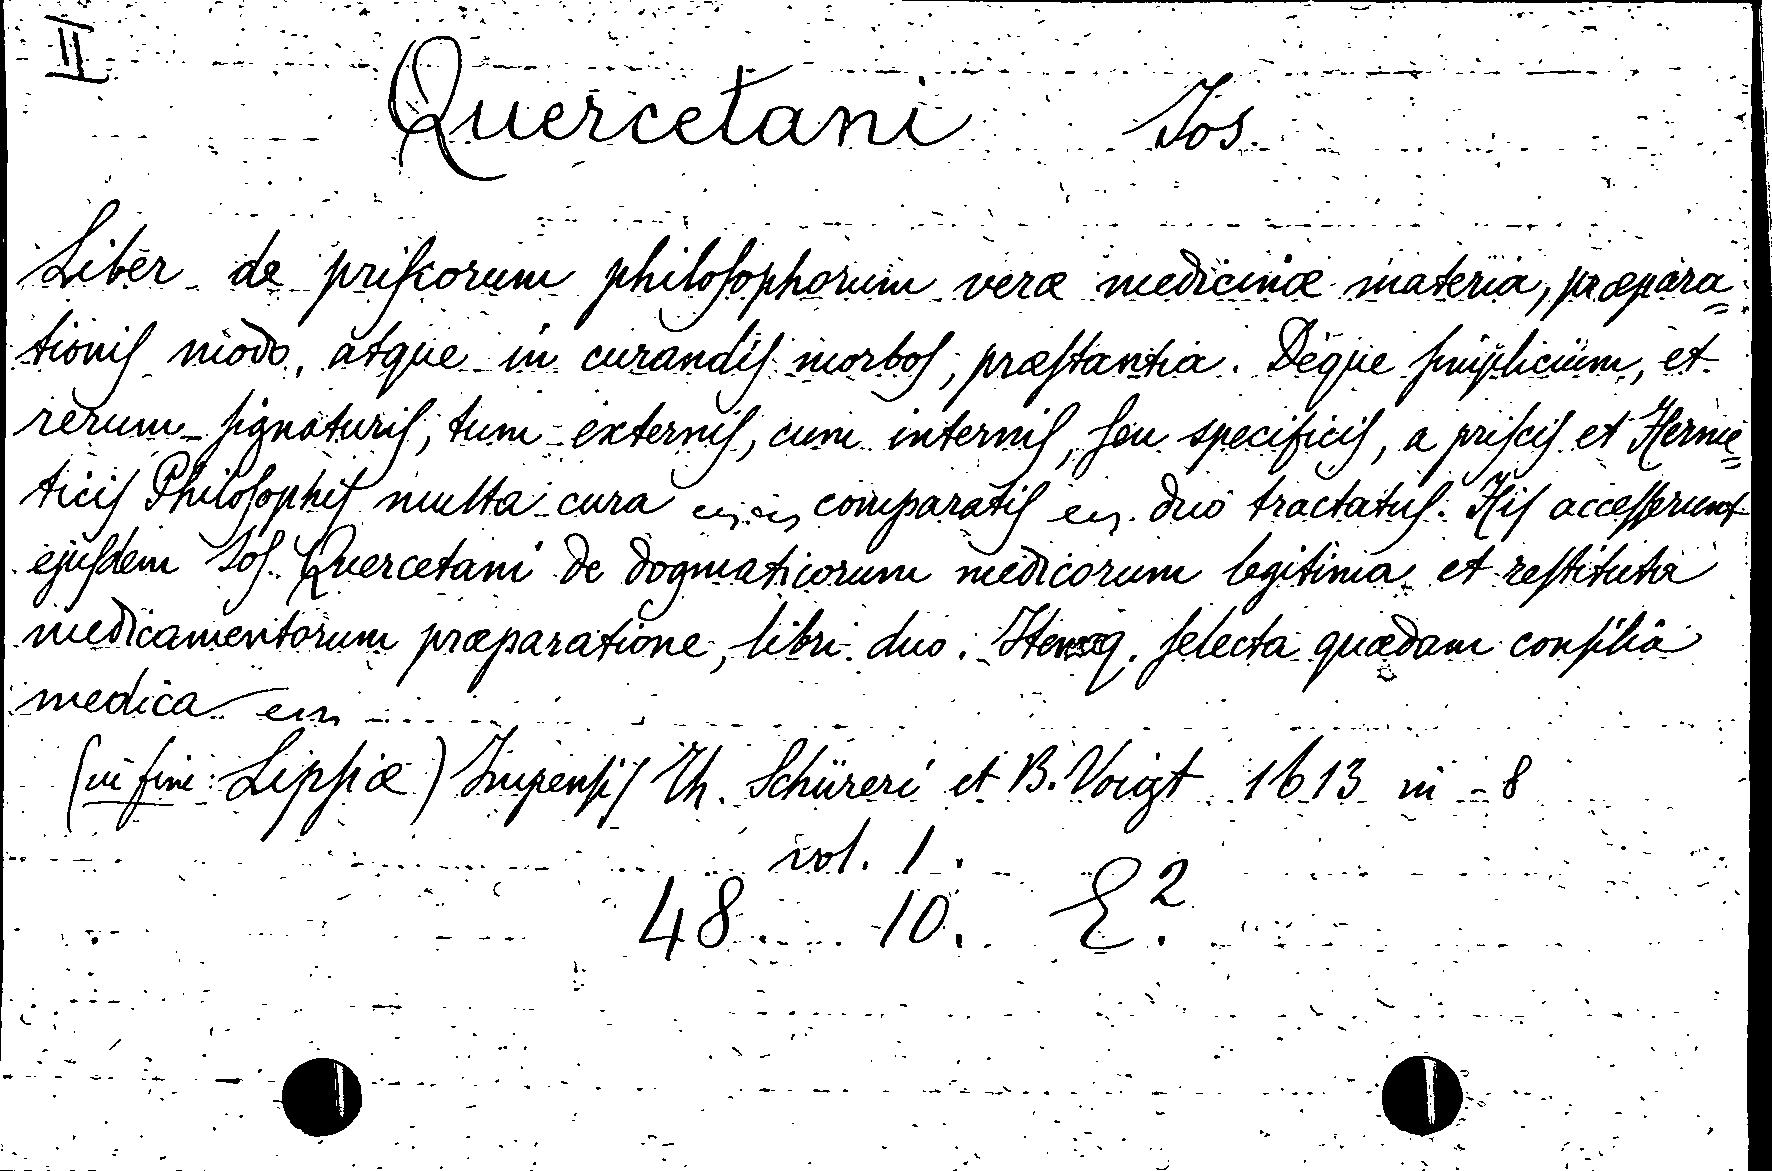 II
Quercetani Jos.
Liber de priscorum philosophorum veræ medicinæ materia, præpara=
tionis modo, atque in curandis morbos, præstantia. Deque simplicium, et
rerum signaturis, tum externis, cum internis, seu specificis, a priscis et Herme=
ticis Philosophis multa cura comparatis duo tractatus. His accesserunt
ejusdem Jos. Quercetani de dogmaticorum medicorum legitima et restituta
medicamentorum præparatione, libri duo. Itemq. selecta quædam consilia
medica
(in fine: Lipsiæ) Impensis Th. Schüreri et B. Voigt 1613 in-8
vol. 1.
48. 10. E².